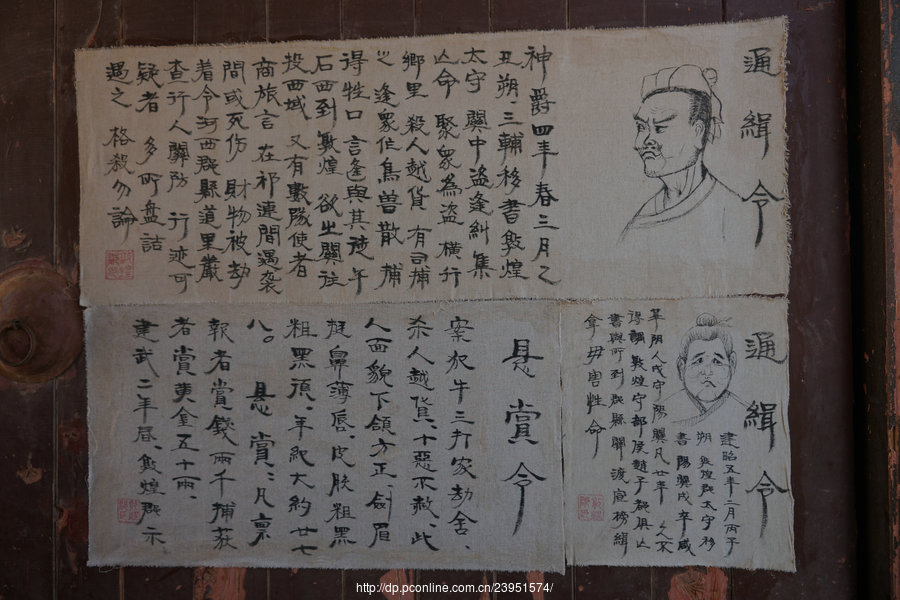 通緝令
神爵四年春三月乙
丑朔三輔移書敦煌
太守 冀中盜逢糾集
亾命 聚衆為盜 橫行
鄉里 殺人越貨 有司捕
之 逢衆作鳥獸散 捕
得牲口 言逢與其徒午
石西到敦煌 欲出關往
投西域 又有數隊使者
商旅言 在祁連間遇袭
間或死伤 財物被劫
着令河西郡縣道里嚴
查行人關防 行迹可
疑者 多所盘詰
遇之 格殺勿論
通緝令
建昭五年二月丙子
朔 敦煌郡太守移
書 陽冀戍卒咸
年 陰人戍守陽冀凡廿年
調敦煌守部候趙子
書與所到郡縣關 渡宣榜緝
拿毋害性命
悬賞令
案犯牛三打家劫舍、
杀人越貨、十惡不赦、此
人面貌下領方正、劍眉
挺鼻薄唇、皮肤粗黑
粗黑須、年紀大約廿七
八。 悬賞：凡禀
報者賞錢兩千捕获
者賞黄金五十兩、
建武二年居、敦煌郡示
http://dp.pconline.com.cn/23951574/